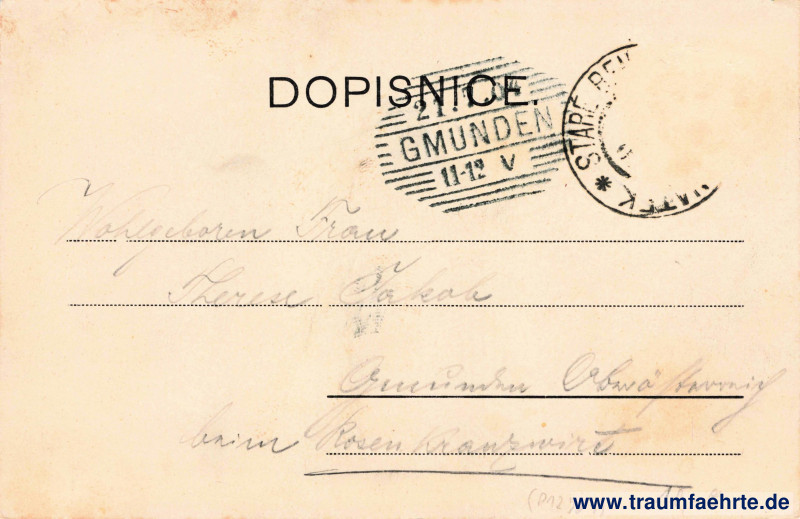 DOPISNICE.
21.7.04
GMUNDEN
11-12 V
* STARÉ
Wohlgeboren Frau
Therese Jakob
Gmunden Oberösterreich
beim Rosenkranzwirt
(P12
www.traumfaehrte.de